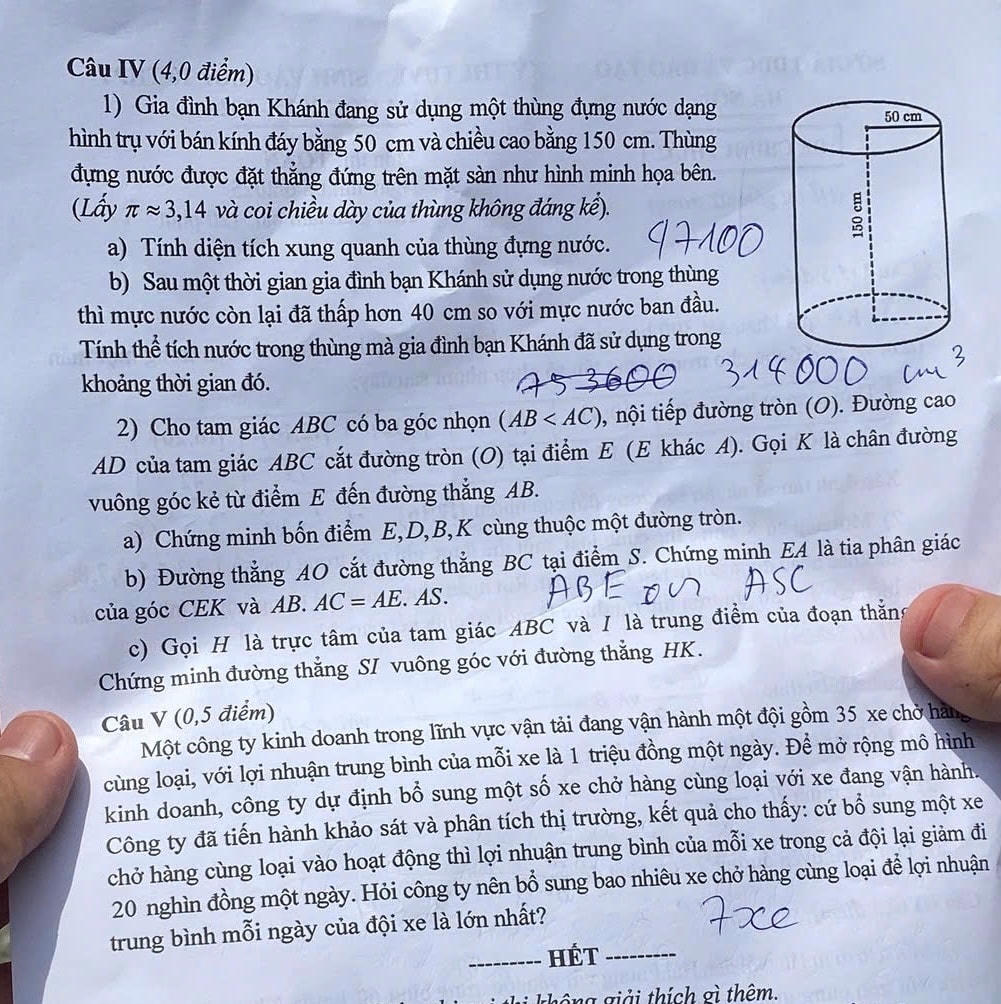 Câu IV (4,0 điểm)
1) Gia đình bạn Khánh đang sử dụng một thùng đựng nước dạng
hình trụ với bán kính đáy bằng 50 cm và chiều cao bằng 150 cm. Thùng
đựng nước được đặt thẳng đứng trên mặt sàn như hình minh họa bên.
(Lấy π ≈ 3,14 và coi chiều dày của thùng không đáng kể).
50 cm
150 cm
a) Tính diện tích xung quanh của thùng đựng nước. 47100
b) Sau một thời gian gia đình bạn Khánh sử dụng nước trong thùng
thì mực nước còn lại đã thấp hơn 40 cm so với mực nước ban đầu.
Tính thể tích nước trong thùng mà gia đình bạn Khánh đã sử dụng trong
khoảng thời gian đó. 753600 314000 cm³
2) Cho tam giác ABC có ba góc nhọn (AB < AC), nội tiếp đường tròn (O). Đường cao
AD của tam giác ABC cắt đường tròn (O) tại điểm E (E khác A). Gọi K là chân đường
vuông góc kẻ từ điểm E đến đường thẳng AB.
a) Chứng minh bốn điểm E,D,B,K cùng thuộc một đường tròn.
b) Đường thẳng AO cắt đường thẳng BC tại điểm S. Chứng minh EA là tia phân giác
của góc CEK và AB. AC = AE. AS. ABE ∽ ASC
c) Gọi H là trực tâm của tam giác ABC và I là trung điểm của đoạn thẳng
Chứng minh đường thẳng SI vuông góc với đường thẳng HK.
Câu V (0,5 điểm)
Một công ty kinh doanh trong lĩnh vực vận tải đang vận hành một đội gồm 35 xe chở hàng
cùng loại, với lợi nhuận trung bình của mỗi xe là 1 triệu đồng một ngày. Để mở rộng mô hình
kinh doanh, công ty dự định bổ sung một số xe chở hàng cùng loại với xe đang vận hành.
Công ty đã tiến hành khảo sát và phân tích thị trường, kết quả cho thấy: cứ bổ sung một xe
chở hàng cùng loại vào hoạt động thì lợi nhuận trung bình của mỗi xe trong cả đội lại giảm đi
20 nghìn đồng một ngày. Hỏi công ty nên bổ sung bao nhiêu xe chở hàng cùng loại để lợi nhuận
trung bình mỗi ngày của đội xe là lớn nhất? 7 xe
---------- HẾT ----------
thi không giải thích gì thêm.